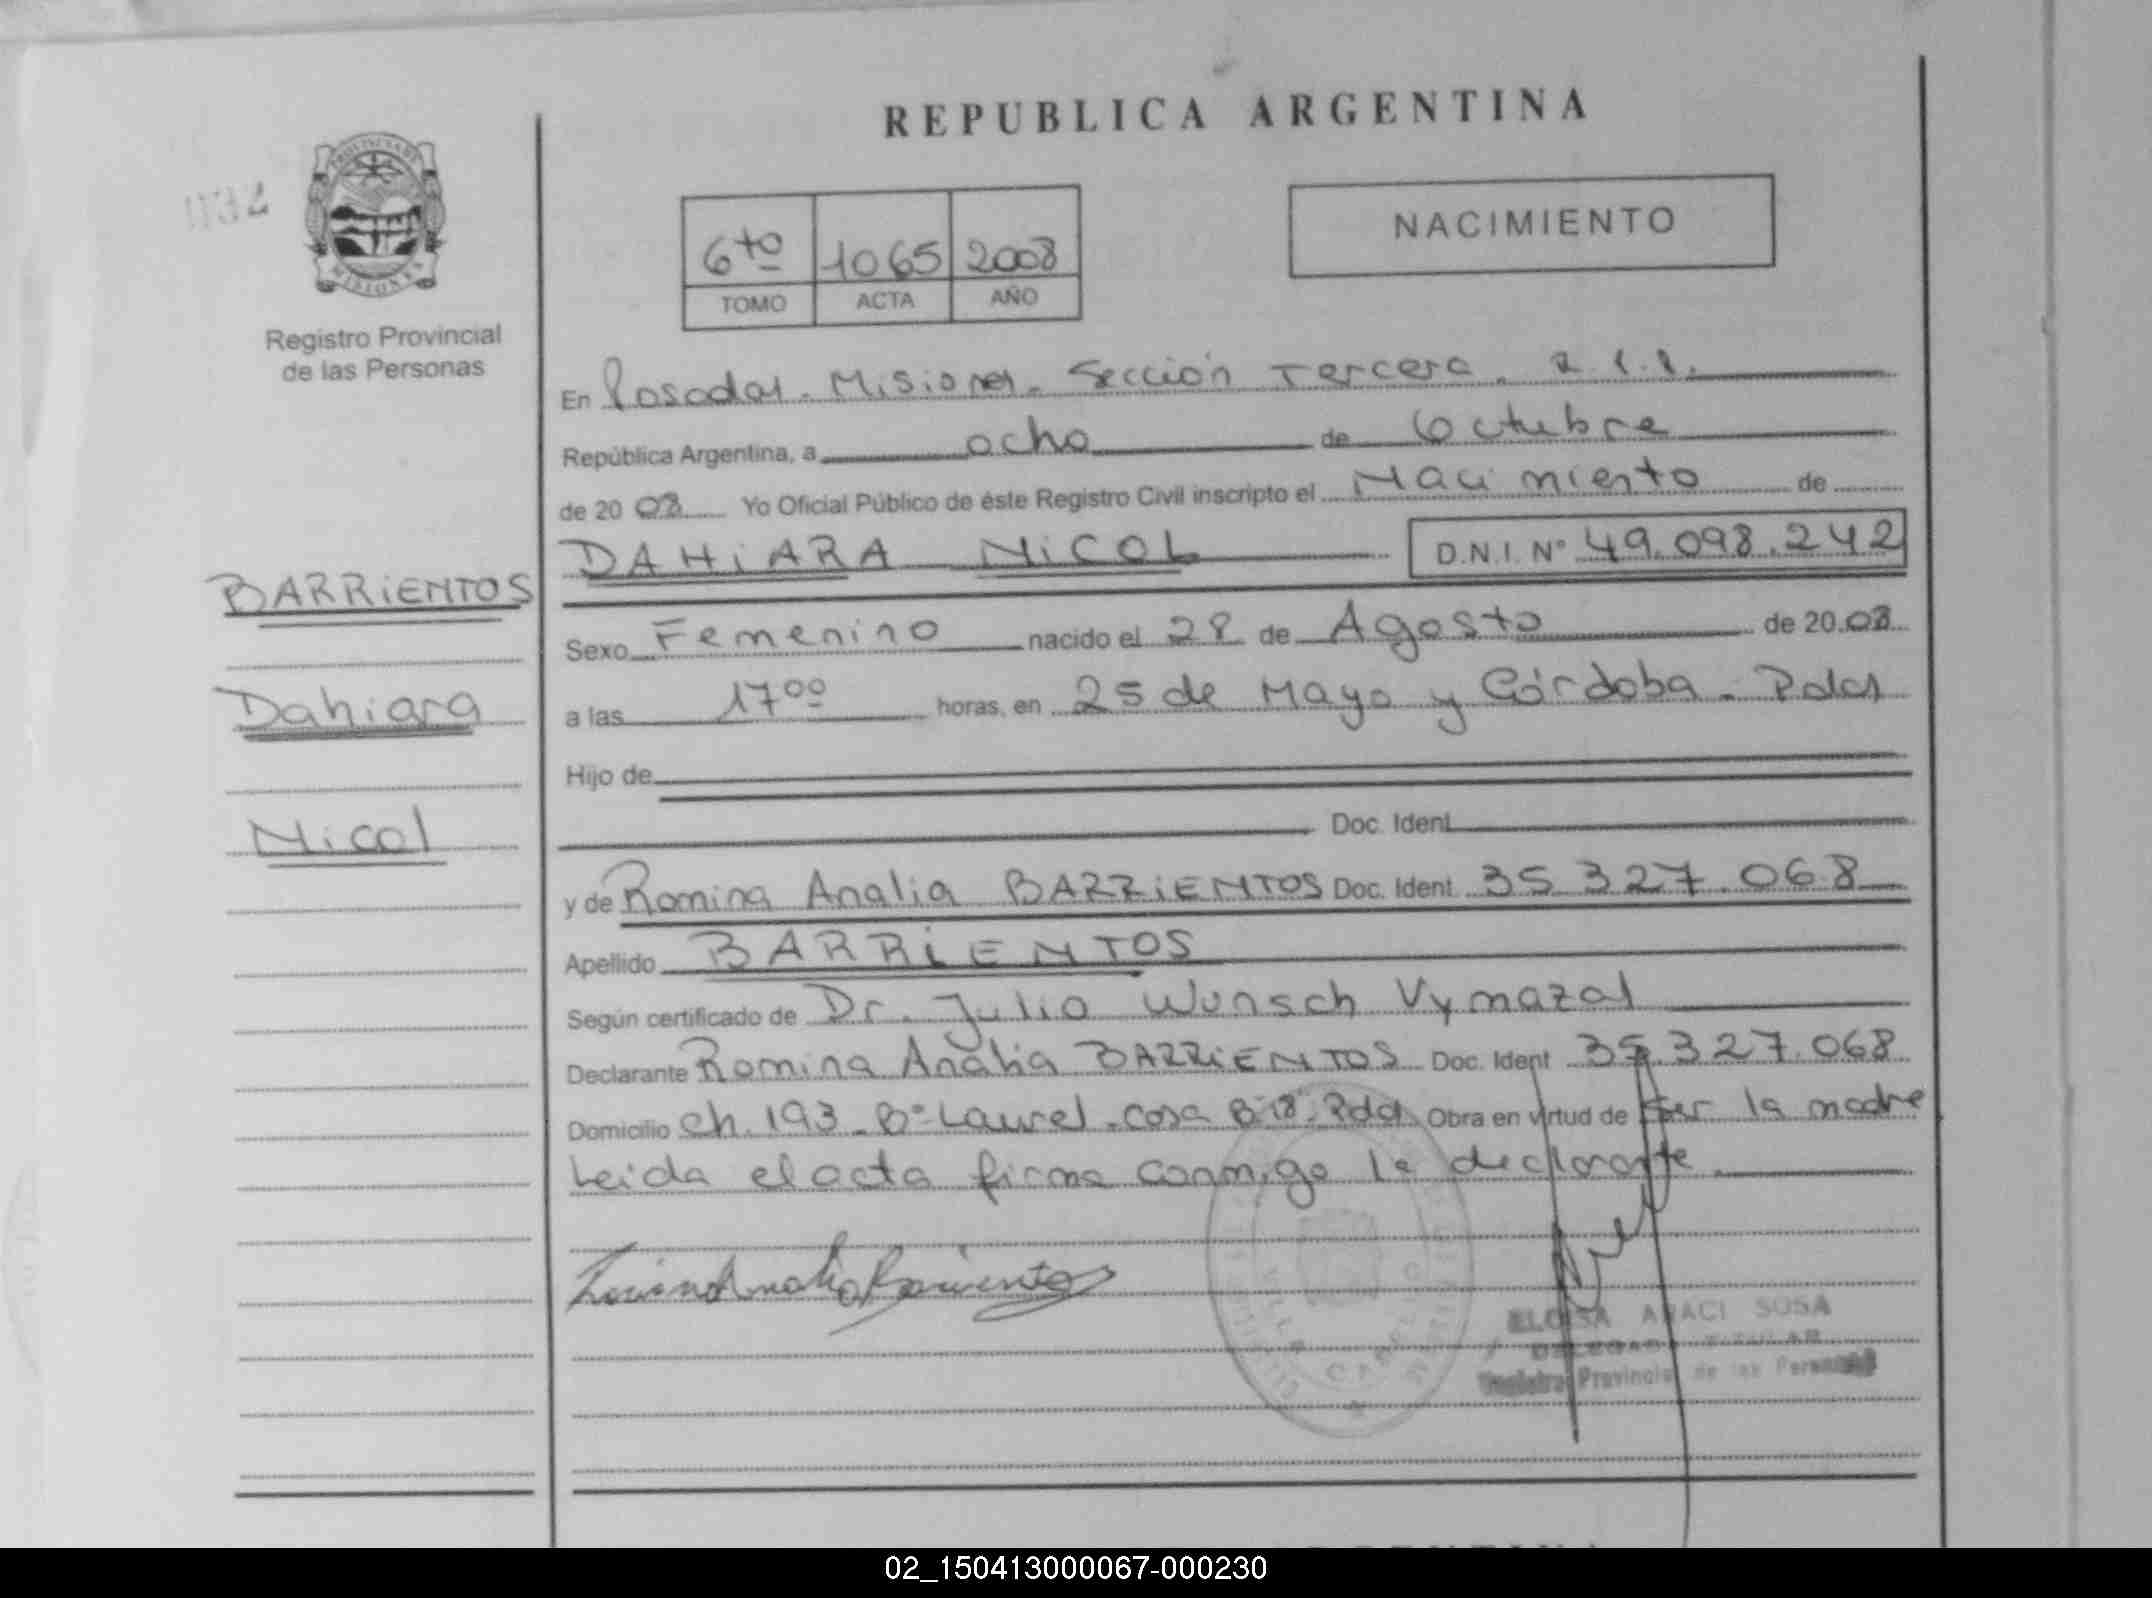 REPUBLICA ARGENTINA
PROVINCIA DE
MISIONES
Registro Provincial
de las Personas
6to 1065 2008
TOMO ACTA AÑO
NACIMIENTO
En Posadas - Misiones - Sección Tercera.
República Argentina, a ocho de Octubre
de 20 08 Yo Oficial Público de éste Registro Civil inscripto el Nacimiento de
DAHIARA NICOL D.N.I. Nº 49.098.242
BARRIENTOS
Dahiara
Nicol
Sexo Femenino nacido el 28 de Agosto de 20 08
a las 17 00 horas, en 25 de Mayo y Córdoba - Pdas
Hijo de
Doc. Ident
y de Romina Analia BARRIENTOS Doc. Ident 35 327.068
Apellido BARRIENTOS
Según certificado de Dr. Julio Wunsch Vymazal
Declarante Romina Analia BARRIENTOS Doc. Ident 35.327.068
Domicilio Ch. 193 - Bº Laurel - casa Pdas Obra en virtud de ser la madre
Leida el acta firma conmigo la declarante
ELOISA ARACI SOSA
DELEGADA TITULAR
Registro Provincial de las Personas
02_150413000067-000230